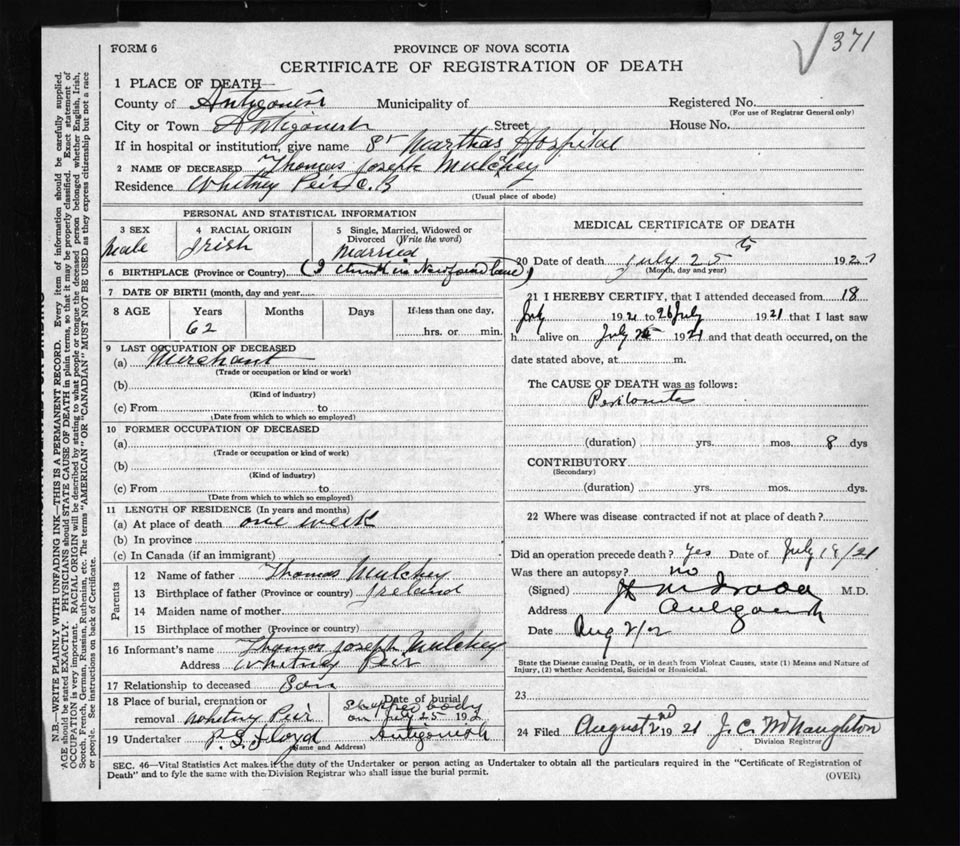 371
FORM 6
PROVINCE OF NOVA SCOTIA
CERTIFICATE OF REGISTRATION OF DEATH
1 PLACE OF DEATH—
County of Antigonish Municipality of Registered No.
(For use of Registrar General only)
City or Town Antigonish Street House No.
If in hospital or institution, give name St Marthas Hospital
2 NAME OF DECEASED Thomas Joseph Mulchey
Residence Whitney Peir C. B
(Usual place of abode)
PERSONAL AND STATISTICAL INFORMATION
3 SEX 4 RACIAL ORIGIN 5 Single, Married, Widowed or Divorced (Write the word)
Male Irish Married
6 BIRTHPLACE (Province or Country) (I think in Newfoundland)
7 DATE OF BIRTH (month, day and year
8 AGE Years Months Days If less than one day,
62 hrs. or min.
9 LAST OCCUPATION OF DECEASED
(a) Merchant
(Trade or occupation or kind or work)
(b)
(Kind of industry)
(c) From to
(Date from which to which so employed)
10 FORMER OCCUPATION OF DECEASED
(a)
(Trade or occupation or kind of work)
(b)
(Kind of industry)
(c) From to
(Date from which to which so employed)
11 LENGTH OF RESIDENCE (In years and months)
(a) At place of death one week
(b) In province
(c) In Canada (if an immigrant)
Parents
12 Name of father Thomas Mulchey
13 Birthplace of father (Province or country) Ireland
14 Maiden name of mother
15 Birthplace of mother (Province or country)
16 Informant's name Thomas Joseph Mulchey
Address Whitney Peir
17 Relationship to deceased Son
18 Place of burial, cremation or removal Whitney Peir
Date of burial
Shipped body
on July 25 192
19 Undertaker Floyd Antigonish
(Name and Address)
MEDICAL CERTIFICATE OF DEATH
20 Date of death July 25 th 192
(Month, day and year)
21 I HEREBY CERTIFY, that I attended deceased from 18
July 1921 to 26 July 1921 that I last saw
h alive on July 1921 and that death occurred, on the
date stated above, at m.
The CAUSE OF DEATH was as follows:
Peritonites
(duration) yrs. mos. 8 dys
CONTRIBUTORY
(Secondary)
(duration) yrs. mos. dys.
22 Where was disease contracted if not at place of death?
Did an operation precede death? Yes Date of July 18/21
Was there an autopsy? no
(Signed) M.D.
Address Antigonish
Date Aug 2/
State the Disease causing Death, or in death from Violent Causes, state (1) Means and Nature of
Injury, (2) whether Accidental, Suicidal or Homicidal.
23
24 Filed August 2nd 1921 J. C. McNaughton
Division Registrar
SEC. 46—Vital Statistics Act makes it the duty of the Undertaker or person acting as Undertaker to obtain all the particulars required in the "Certificate of Registration of
Death" and to fyle the same with the Division Registrar who shall issue the burial permit.
(OVER)
N.B.—WRITE PLAINLY WITH UNFADING INK—THIS IS A PERMANENT RECORD. Every item of information should be carefully supplied.
AGE should be stated EXACTLY. PHYSICIANS should STATE CAUSE OF DEATH in plain terms, so that it may be properly classified. Exact statement of
OCCUPATION is very important. RACIAL ORIGIN will be described by stating to what people or tongue the deceased person belonged whether English, Irish,
Scotch, French, German, Russian, Ruthenian, etc. The terms "AMERICAN" OR "CANADIAN" MUST NOT BE USED as they express citizenship but not a race
or people. See instructions on back of Certificate.